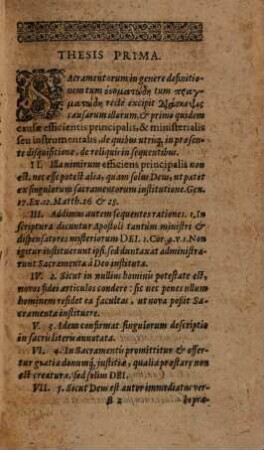 THESIS PRIMA.
SAcramentorum in genere definitio-
nem tum ὀνοματώδη tum πραγ-
ματώδη recte excipit
causarum illarum, & primo quidem
causæ efficientis principalis, & ministerialis
seu instrumentalis, de quibus utriq, in præsen-
te disquisitione, de reliquis in sequentibus.
II. Illarum efficiens principalis non
est, nec esse potest alia, quam solus Deus, ut patet
ex singulorum sacramentorum institutione. Gen.
17. Ex. 12. Matth. 26 & 28.
III. Addimus autem sequentes rationes. 1. In
scriptura dicuntur Apostoli tantum ministri &
dispensatores mysteriorum DEI. 1. Cor. 4. v. 1. Non
igitur instituerunt ipsi, sed duntaxat administra-
runt Sacramenta à Deo instituta.
IV. 2. Sicut in nullius hominis potestate est,
novos fidei articulos condere: sic nec penes ullum
hominem residet ea facultas, ut nova possit Sa-
cramenta instituere.
V. 3. Idem confirmat singulorum descriptio
in sacris literis annotata.
VI. 4. In Sacramentis promittitur & offer-
tur gratia donumq; justitiæ, qualia præstare non
est creaturæ, sed solius DEI.
VII. 5. Sicut Deus est autor immediatus ver-
bi præ-